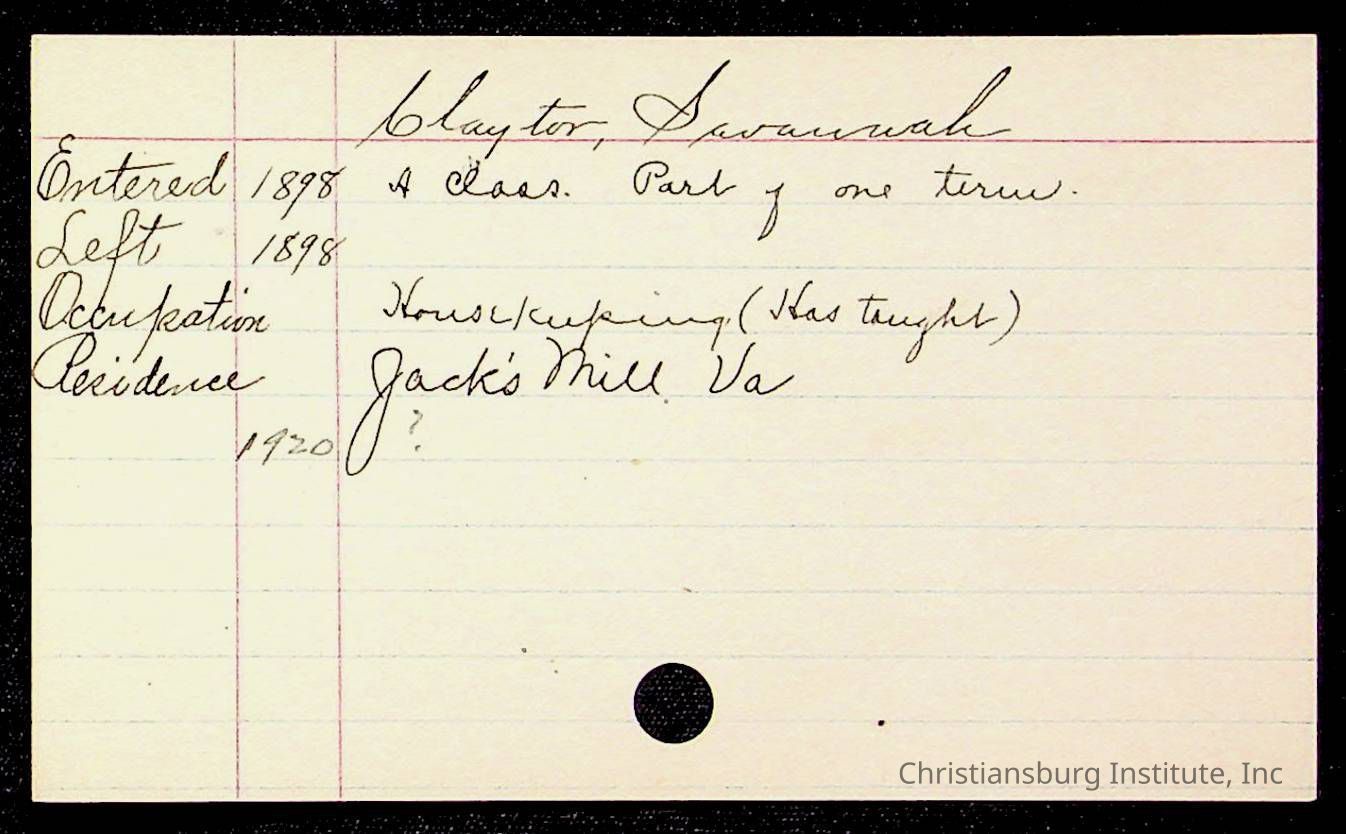 Claytor, Savannah
Entered 1898 A Class. Part of one term.
Left 1898
Occupation Housekeeping (Has taught)
Residence Jack's Mill Va
1920 ?
Christiansburg Institute, Inc